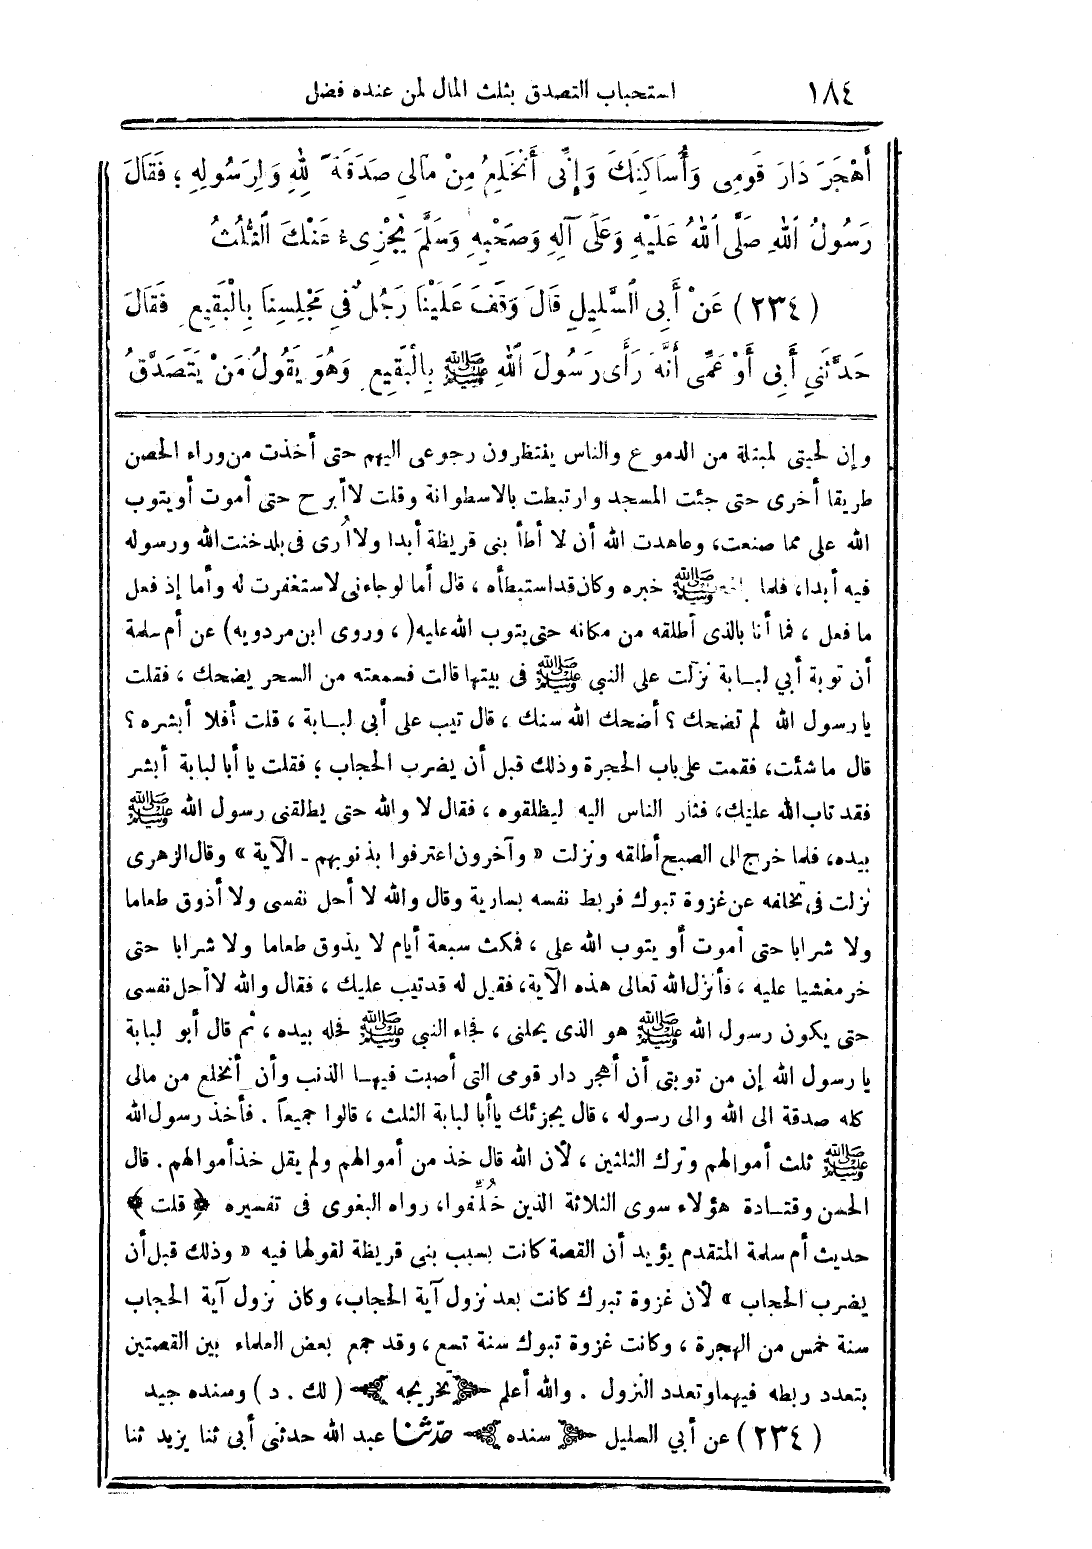 ١٨٤ استحباب التصدق بثلث المال لمن عنده فضل
أَهْجَرَ دَارَ قَومِى وَأُسَاكِنَكَ وَإِنِّى أَنْخَلِعُ مِنْ مَالِى صَدَقَةً لِلّٰهِ وَلِرَسُولِهِ ، فَقَالَ
رَسُولُ اللهِ صَلَّى اللهُ عَلَيْهِ وَعَلَى آلِهِ وَصَحْبِهِ وَسَلَّمَ يُجْزِىءُ عَنْكَ الثُّلُثُ
(٢٣٤) عَنْ أَبِى السَّلِيلِ قَالَ وَقَفَ عَلَيْنَا رَجُلٌ فِى مَجْلِسِنَا بِالْبَقِيعِ فَقَالَ
حَدَّثَنِى أَبِى أَوْ عَمِّى أَنَّهُ رَأَى رَسُولَ اللهِ ﷺ بِالْبَقِيعِ وَهُوَ يَقُولُ مَنْ يَتَصَدَّقُ
وإن لحيتى لمبتلة من الدموع والناس ينتظرون رجوعى اليهم حتى أخذت من وراء الحصن
طريقا أخرى حتى جئت المسجد وارتبطت بالاسطوانة وقلت لا أبرح حتى أموت أو يتوب
الله على مما صنعت، وعاهدت الله أن لا أطأ بنى قريظة أبدا ولا أُرى فى بلد خنت الله ورسوله
فيه أبدا، فلما ﷺ خبره وكان قد استبطأه ، قال أما لو جاءنى لاستغفرت له وأما إذ فعل
ما فعل ، فما أنا بالذى أطلقه من مكانه حتى يتوب الله عليه (، وروى ابن مردويه) عن أم سلمة
أن توبة أبي لبـابة نزلت على النبي ﷺ فى بيتها قالت فسمعته من السحر يضحك ، فقلت
يا رسول الله لم تضحك ؟ أضحك الله سنك ، قال تيب على أبى لبـابة ، قلت أفلا أبشره ؟
قال ما شئت، فقمت على باب الحجرة وذلك قبل أن يضرب الحجاب ؛ فقلت يا أبا لبابة أبشر
فقد تاب الله عليك، فثار الناس اليه ليطلقوه ، فقال لا والله حتى يطلقنى رسول الله ﷺ
بيده، فلما خرج الى الصبح أطلقه ونزلت « وآخرون اعترفوا بذنوبهم ـ الآية » وقال الزهرى
نزلت فى تخلفه عن غزوة تبوك فربط نفسه بسارية وقال والله لا أحل نفسى ولا أذوق طعاما
ولا شرابا حتى أموت أو يتوب الله على ، فمكث سبعة أيام لا يذوق طعاما ولا شرابا حتى
خر مغشيا عليه ، فأنزل الله تعالى هذه الآية، فقيل له قد تيب عليك ، فقال والله لا أحل نفسى
حتى يكون رسول الله ﷺ هو الذى يحلنى ، فجاء النبي ﷺ فحله بيده ، ثم قال أبو لبابة
يا رسول الله إن من توبتى أن أهجر دار قومى التى أصبت فيهـا الذنب وأن أنخلع من مالى
كله صدقة الى الله والى رسوله ، قال يجزئك يا أبا لبابة الثلث ، قالوا جميعاً . فأخذ رسول الله
ﷺ ثلث أموالهم وترك الثلثين ، لأن الله قال خذ من أموالهم ولم يقل خذ أموالهم . قال
الحسن وقتـادة هؤلاء سوى الثلاثة الذين خُلِّفوا، رواه البغوى فى تفسيره ﴿ قلت ﴾
حديث أم سلمة المتقدم يؤيد أن القصة كانت بسبب بنى قريظة لقولها فيه « وذلك قبل أن
يضرب الحجاب » لأن غزوة تبوك كانت بعد نزول آية الحجاب، وكان نزول آية الحجاب
سنة خمس من الهجرة ، وكانت غزوة تبوك سنة تسع ، وقد جمع بعض العلماء بين القصتين
بتعدد ربطه فيهما وتعدد النزول . والله أعلم تخريجه (لك . د) وسنده جيد
(٢٣٤) عن أبي السليل سنده حدّثنا عبد الله حدثنى أبى ثنا يزيد ثنا